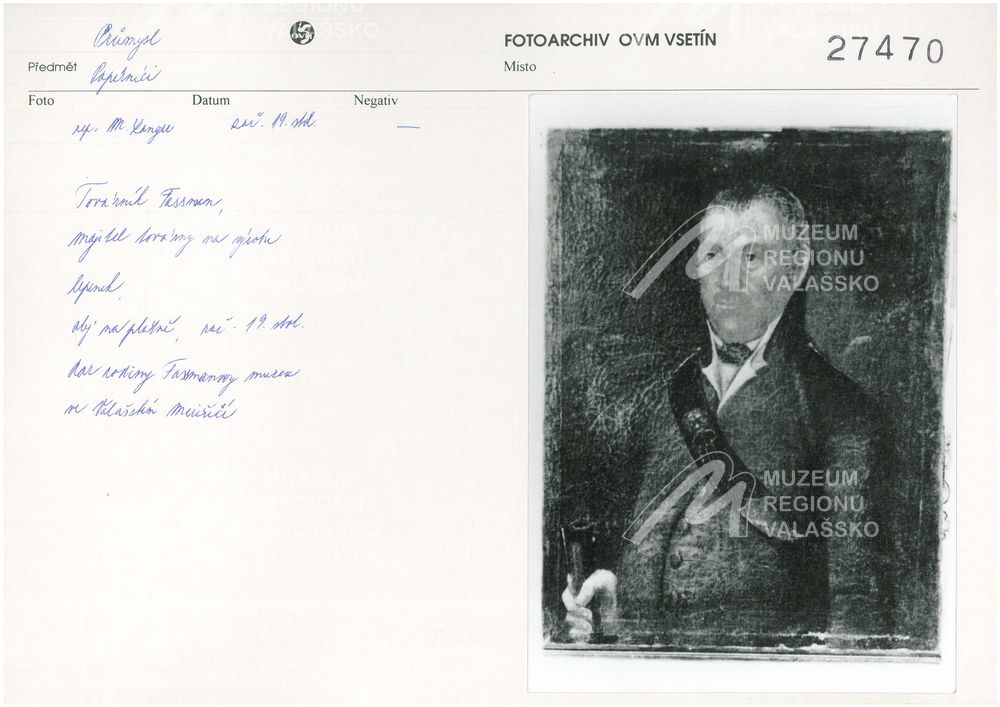 Průmysl
OVM
FOTOARCHIV OVM VSETÍN
27470
Předmět Papírníci
Místo
Foto Datum Negativ
rep. M. Langer zač. 19. stol. —
Továrník Fassman,
majitel továrny na výrobu
lepenek,
olej na plátně, zač. 19. stol.
dar rodiny Fassmanovy muzeu
ve Valašském Meziříčí
MUZEUM
REGIONU
VALAŠSKO
MUZEUM
REGIONU
VALAŠSKO
MUZEUM
REGIONU
VALAŠSKO